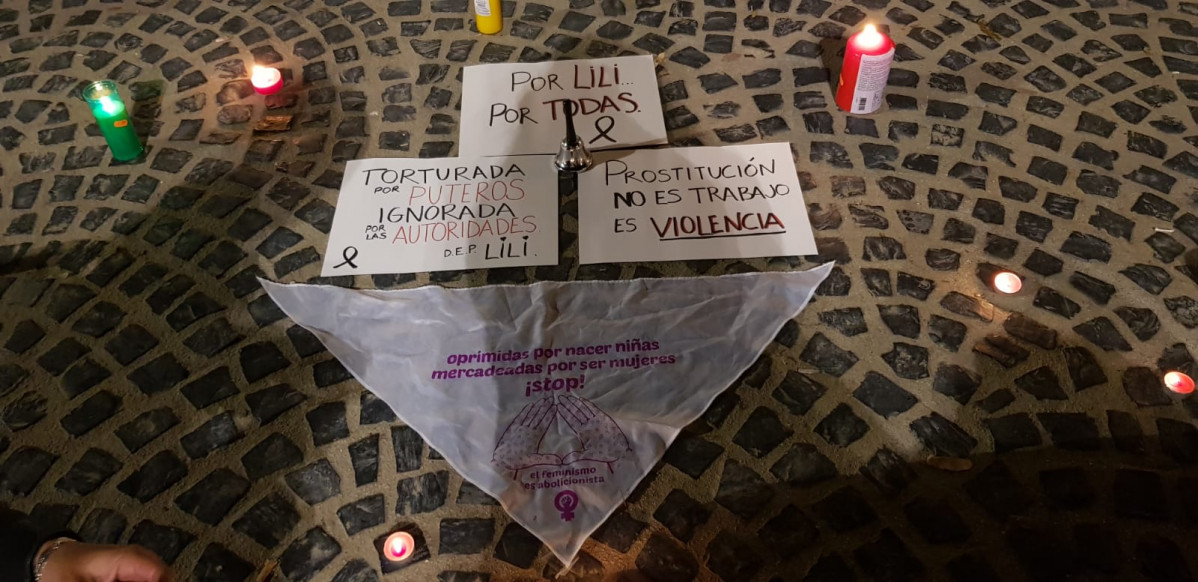 POR LILI...
POR TODAS.
TORTURADA
POR PUTEROS
IGNORADA
POR LAS AUTORIDADES.
D.E.P. LILI.
PROSTITUCIÓN
NO ES TRABAJO
ES VIOLENCIA
oprimidas por nacer niñas
mercadeadas por ser mujeres
¡stop!
el feminismo
es abolicionista